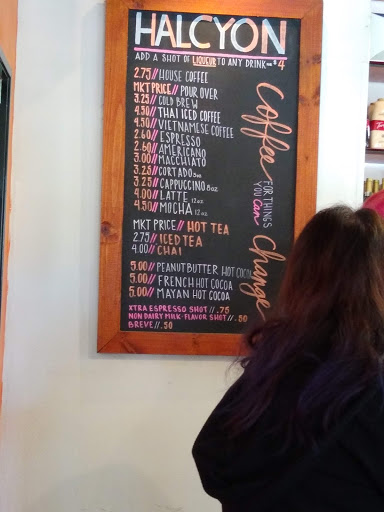 HALCYON
ADD A SHOT OF LIQUEUR TO ANY DRINK $4
2.75// HOUSE COFFEE
MKT PRICE// POUR OVER
3.25// COLD BREW
4.50// THAI ICED COFFEE
4.50// VIETNAMESE COFFEE
2.60// ESPRESSO
2.60// AMERICANO
3.00// MACCHIATO
3.25// CORTADO 5oz
3.25// CAPPUCCINO 8oz
4.00// LATTE 12oz
4.50// MOCHA 12oz
MKT PRICE// HOT TEA
2.75// ICED TEA
4.00// CHAI
5.00// PEANUT BUTTER HOT COCOA
5.00// FRENCH HOT COCOA
5.00// MAYAN HOT COCOA
XTRA ESPRESSO SHOT // .75
NON DAIRY MILK · FLAVOR SHOT // .50
BREVE // .50
Coffee
FOR THINGS
YOU Can
Change